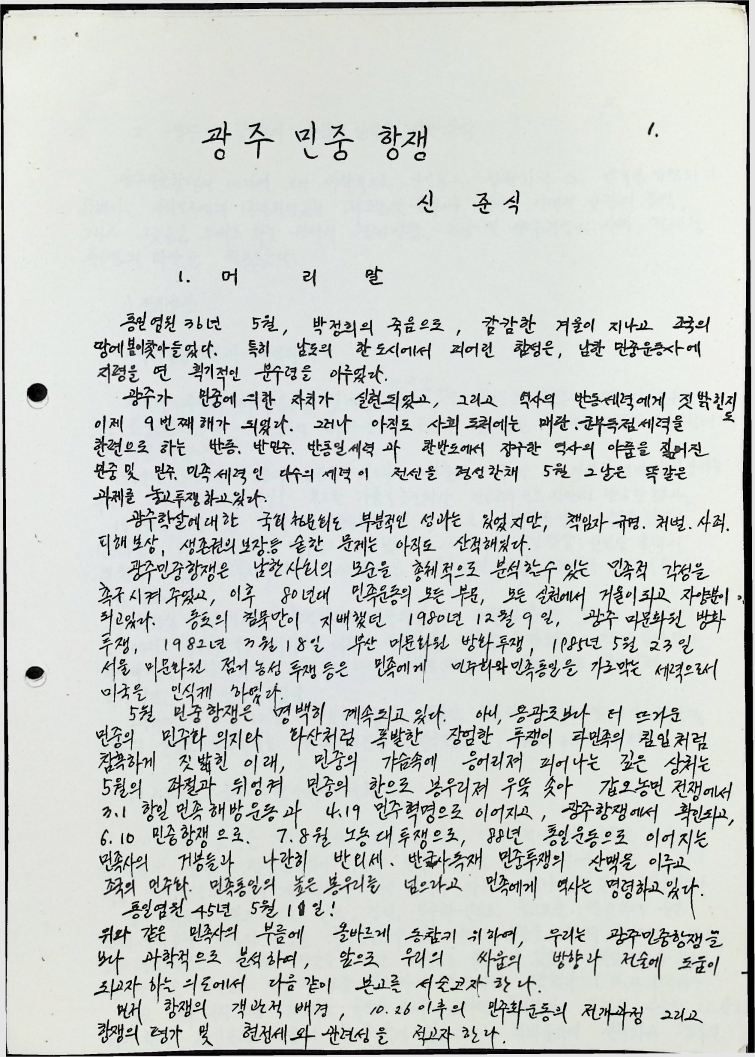 1.
광주 민중 항쟁
신 준 식
1. 머 리 말
통일염원 36년 5월, 박정희의 죽음으로, 캄캄한 겨울이 지나고 조국의
땅에 봄이 찾아들었다. 특히 남도의 한 도시에서 피어린 함성은, 남한 민중운동사에
지평을 연 획기적인 분수령을 이루었다.
광주가 민중에 의한 자치가 실현되었고, 그리고 역사의 반동세력에게 짓밟힌지도
이제 9번째해가 되었다. 그러나 아직도 사회 도처에는 매판·군부독점세력을
관련으로 하는 반동. 반민주. 반통일세력과 한반도에서 장구한 역사의 아픔을 짊어진
민중 및 민주. 민족세력인 다수의 세력이 전선을 형성한채 5월 그날은 똑같은
과제를 놓고투쟁하고있다.
광주학살에대한 국회청문회도 부분적인 성과는 있었지만, 책임자 규명. 처벌. 사죄.
피해보상, 생존권의보장등 숱한 문제는 아직도 산적해있다.
광주민중항쟁은 남한사회의 모순을 총체적으로 분석할수 있는 민족적 각성을
촉구시켜 주었고, 이후 80년대 민족운동의 모든부문, 모든 실천에서 거울이되고 자양분이
되고있다. 공포의 침묵만이 지배했던 1980년 12월 9일, 광주 미문화원 방화
투쟁, 1982년 3월 18일 부산 미문화원 방화투쟁, 1985년 5월 23일
서울 미문화원 점거농성 투쟁등은 민족에게 민주화와민족통일을 가로막는 세력으로서
미국을 인식케 하였다.
5월 민중항쟁은 명백히 계속되고있다. 아니, 용광로보다 더 뜨거운
민중의 민주화 의지와 화산처럼 폭발한 장엄한 투쟁이 타민족의 침입처럼
참혹하게 짓밟힌 이래, 민중의 가슴속에 응어리져 피어나는 깊은 상처는
5월의 좌절과 뒤엉켜 민중의 한으로 봉우리져 우뚝솟아 갑오농민 전쟁에서
3.1 항일민족해방운동과 4.19 민주혁명으로 이어지고, 광주항쟁에서 확인되고,
6.10 민중항쟁으로. 7.8월 노동대투쟁으로, 88년 통일운동으로 이어지는
민족사의 거봉들과 나란히 반외세. 반군사독재 민중투쟁의 산맥을 이루고
조국의 민주화. 민족통일의 높은봉우리를 넘으라고 민족에게 역사는 명령하고있다.
통일염원 45년 5월 11일!
위와 같은 민족사의 부름에 올바르게 동참키 위하여, 우리는 광주민중항쟁을
보다 과학적으로 분석하여, 앞으로 우리의 싸움의 방향과 전술에 도움이
되고자 하는 의도에서 다음같이 본고를 서술고자 한다.
먼저 항쟁의 객관적 배경, 10.26 이후의 민주화운동의 전개과정 그리고
항쟁의 평가 및 현정세와 관련성을 적고자한다.